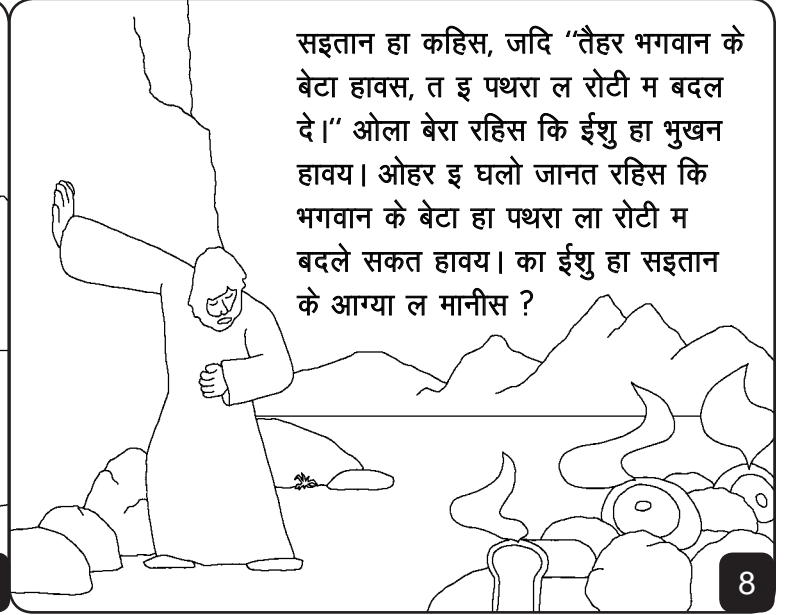 सइतान हा कहिस, जदि “तैहर भगवान के
बेटा हावस, त इ पथरा ल रोटी म बदल
दे।“ ओला बेरा रहिस कि ईशु हा भुखन
हावय। ओहर इ घलो जानत रहिस कि
भगवान के बेटा हा पथरा ला रोटी म
बदले सकत हावय। का ईशु हा सइतान
के आग्या ल मानीस ?
8